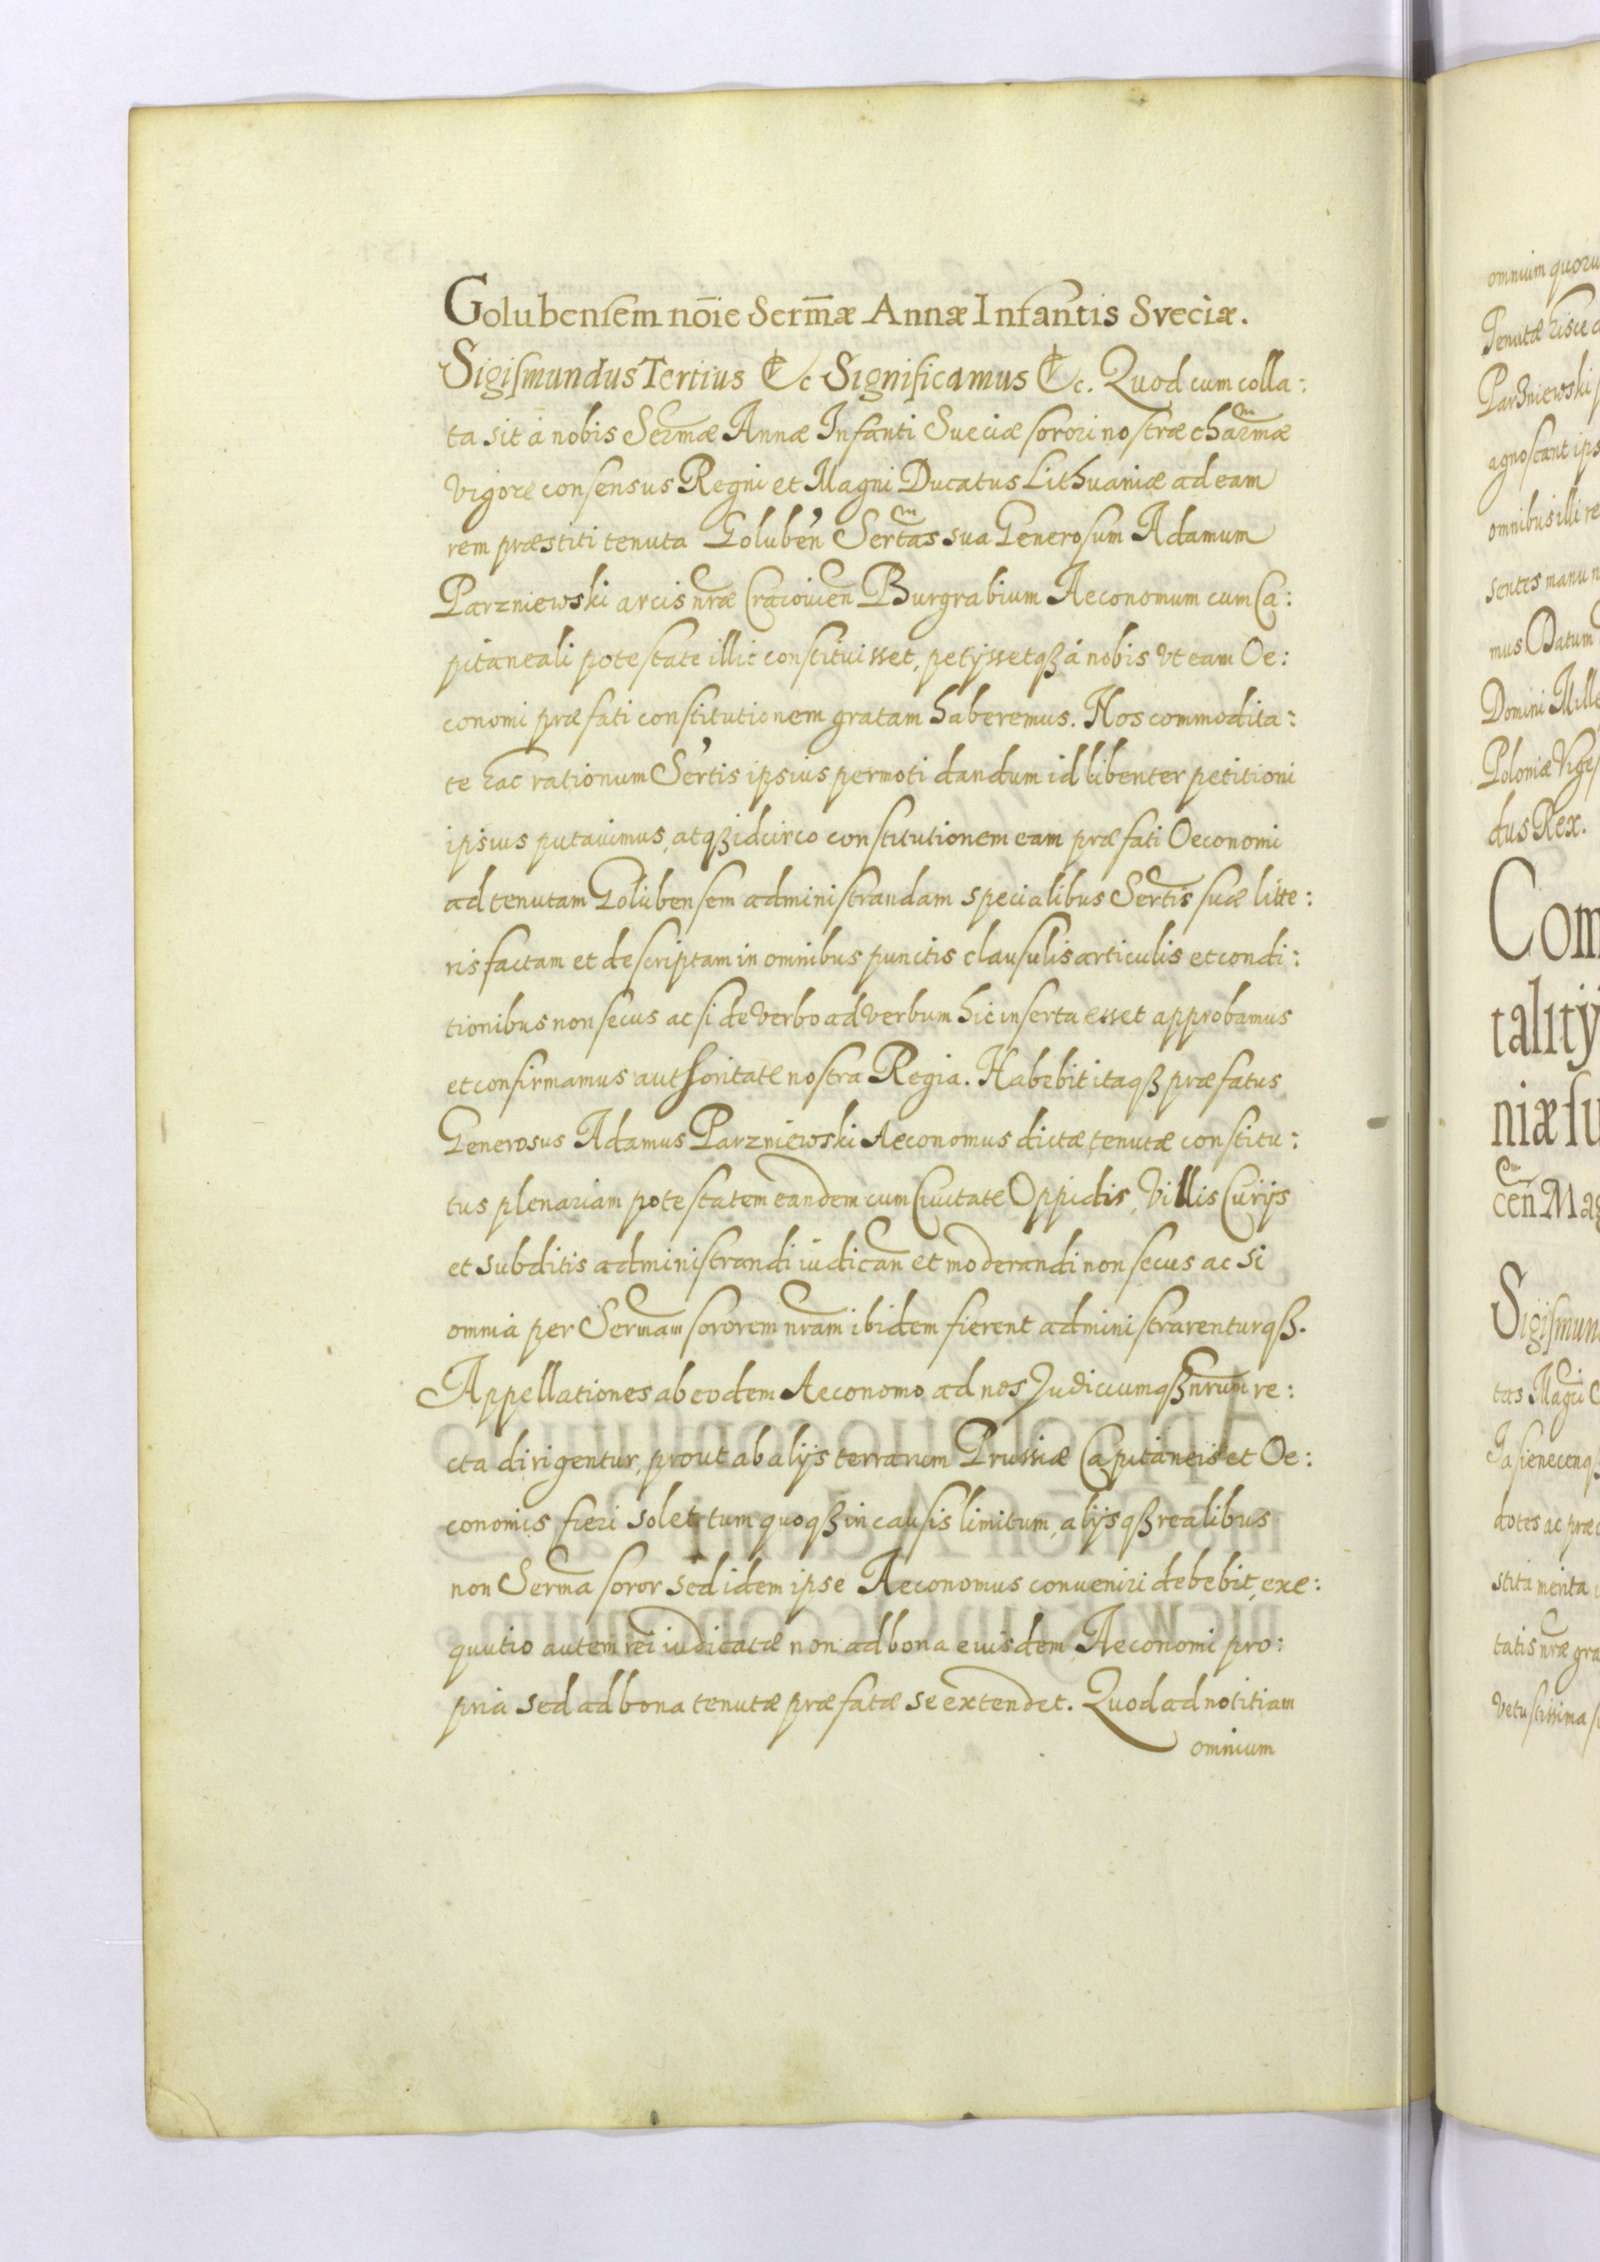 Golubensem nōie Serm̄æ Annæ Infantis Sveciæ.
Sigismundus Tertius &c Significamus &c. Quod cum colla:
ta sit á nobis Serm̄æ Annæ Infanti Sueciæ sorori nostræ charm̄æ
vigore consensus Regni et Magni Ducatus Lithuaniæ ad eam
rem præstiti tenuta Goluben̄ Sert̄as sua Generosum Adamum
Parzniewski arcis nr̄æ Cracovien̄ Burgrabium Aeconomum cum Ca:
pitaneali potestate illic constituisset, petijssetqꝫ á nobis vt eam Oe:
conomi præfati constitutionem gratam haberemus. Nos commodita:
te hac rationum Ser̄tis ipsius permoti dandum id libenter petitioni
ipsius putavimus, atqꝫ idcirco constitutionem eam præfati Oeconomi
ad tenutam Golubensem administrandam specialibus Sert̄is suæ litte:
ris factam et descriptam in omnibus punctis clausulis articulis et condi:
tionibus non secus ac si de verbo ad verbum hic inserta esset approbamus
et confirmamus authoritate nostra Regia. Habebit itaqꝫ præfatus
Generosus Adamus Parzniewski Aeconomus dictæ tenutæ constitu:
tus plenariam potestatem eandem cum Civitate Oppidis, Villis Curijs
et subditis administrandi iudican̄ et moderandi non secus ac si
omnia per Serm̄am sororem nr̄am ibidem fierent administrarenturqꝫ.
Appellationes ab eodem Aeconomo ad nos Judiciumqꝫ nr̄um re:
cta dirigentur, prout ab alijs terrarum Prussiæ Capitaneis et Oe:
conomis fieri solet, tum quoqꝫ in causis limitum, alijsqꝫ realibus
non Serm̄a soror sed idem ipse Aeconomus conveniri debebit, exe:
quutio autem rei iudicatæ non ad bona eiusdem Aeconomi pro:
pria sed ad bona tenutæ præfatæ se extendet. Quod ad notitiam
omnium
omnium quoru
Tenutæ
Parzniewski
agnoscant ips
omnibus illi re
sentes manu n
mus Datum
Domini Mille
Poloniæ Viges
dus Rex.
Com
talitij
niæ su
cen̄ Mag
Sigismun
tas Magni
Jasienecenqꝫ
dotes ac præc
stita merita
tatis nr̄æ gra
vetustissima